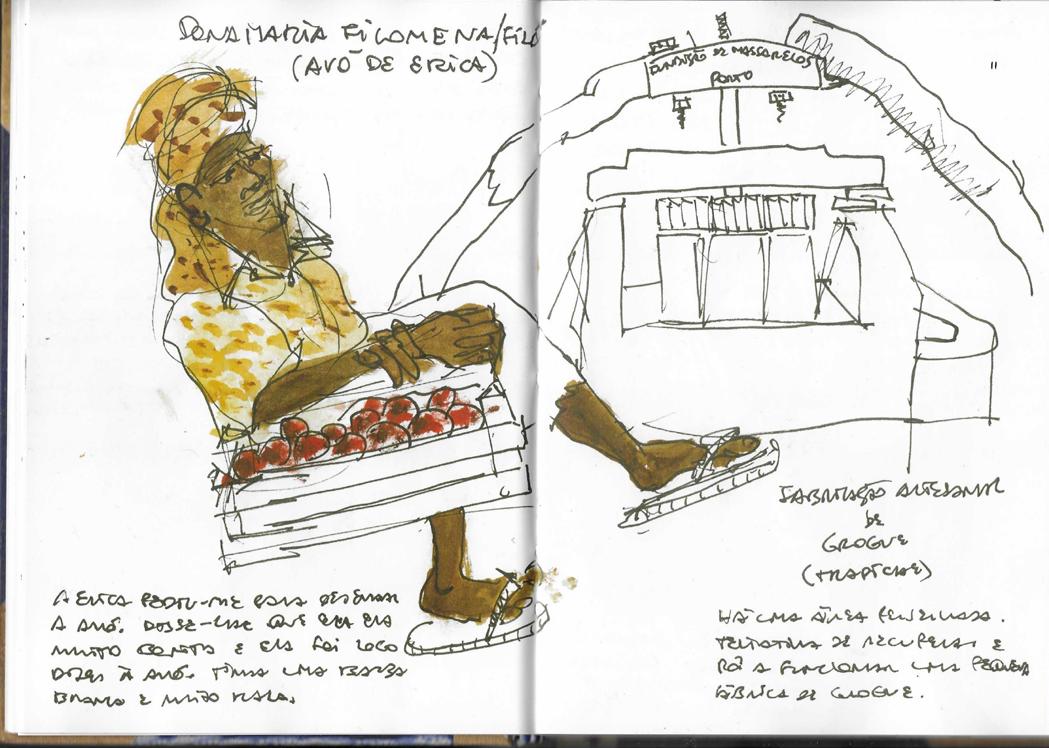 DONA MARIA FILOMENA/FILÓ
(AVÓ DE ERICA)
FUNDIÇÃO DE MASSARELOS
PORTO
"
FABRICAÇÃO ARTESANAL
DE
GROGUE
(TRAPICHE)
A ERICA PEDIU-ME PARA DESENHAR
A AVÓ. DISSE-LHE QUE ERA ELA
MUITO BONITA E ELA FOI LOGO
DIZER À AVÓ. TINHA UMA
BRANCA E MUITO RALA.
HÁ UMA ÁREA
TENTATIVA DE RECUPERAR E
PÔR A FUNCIONAR UMA PEQUENA
FÁBRICA DE GROGUE.